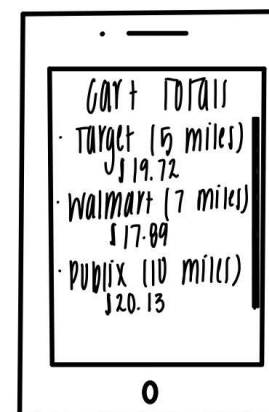 Cart Totals
· Target (5 miles)
$19.72
· Walmart (7 miles)
$17.89
· Publix (10 miles)
$20.13